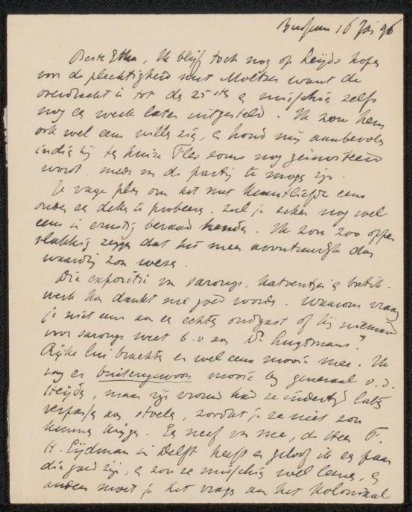 16 Jan 96
Beste Etha, Ik blijf toch nog op Heijde hopen
voor de plechtigheid met Moltzer want de
overdracht is tot de 25ste & misschien zelfs
nog een week later uitgesteld. Ik zou hem
ook wel eens willen zien, & houd mij aanbevolen
indien bij ten huize Fles soms nog geïnviteerd
wordt mede van de partij te mogen zijn.
Je vage plan om het met eens
onder de te probeeren, zal je zeker nog wel
eens in ernstig beraad houden. Ik zou zoo opper-
vlakkig zeggen dat het meer avontuurlijk dan
waardig zou wezen.
Die expositie van sarongs, & batik-
werk kan dunkt me goed worden. Waarom vraag
je niet eens aan een echte oudgast of hij niemand
voor sarongs weet b.v. aan Dr.
Rijke lui brachten er wel eens mooie mee. Ik
zag er buitengewoon mooie bij generaal v.d.
Heijde, maar zijn vrouw had ze indertijd laten
verknippen aan stoelen, zoodat je ze niet zou
kunnen krijgen. Een neef van me, de Heer F.
H. Eijdman in Delft heeft er geloof ik een paar
die goed zijn, & zou ze misschien wel leenen, &
anders moet je het vragen aan het Koloniaal